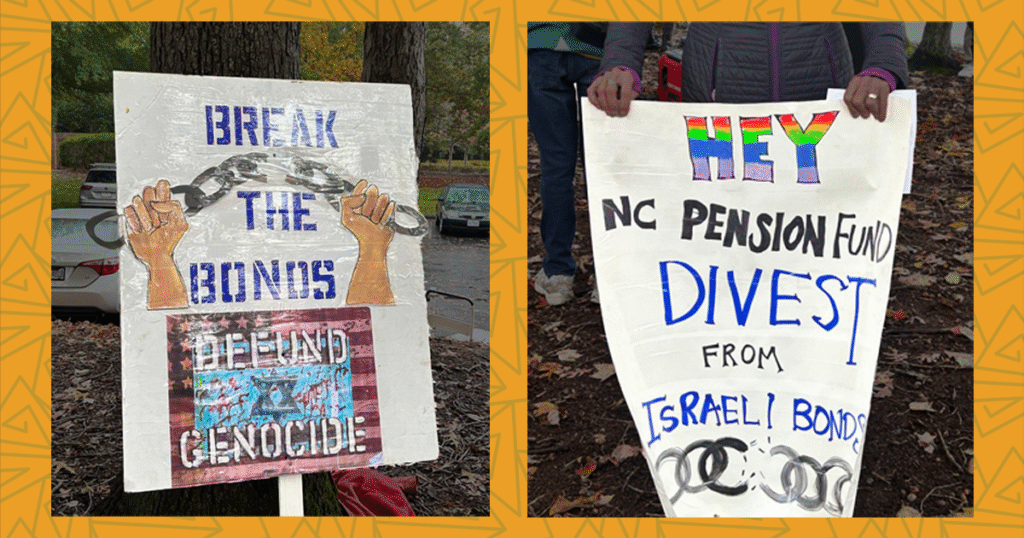 BREAK
THE
BONDS
DEFUND
GENOCIDE
HEY
NC PENSION FUND
DIVEST
FROM
ISRAELI BONDS